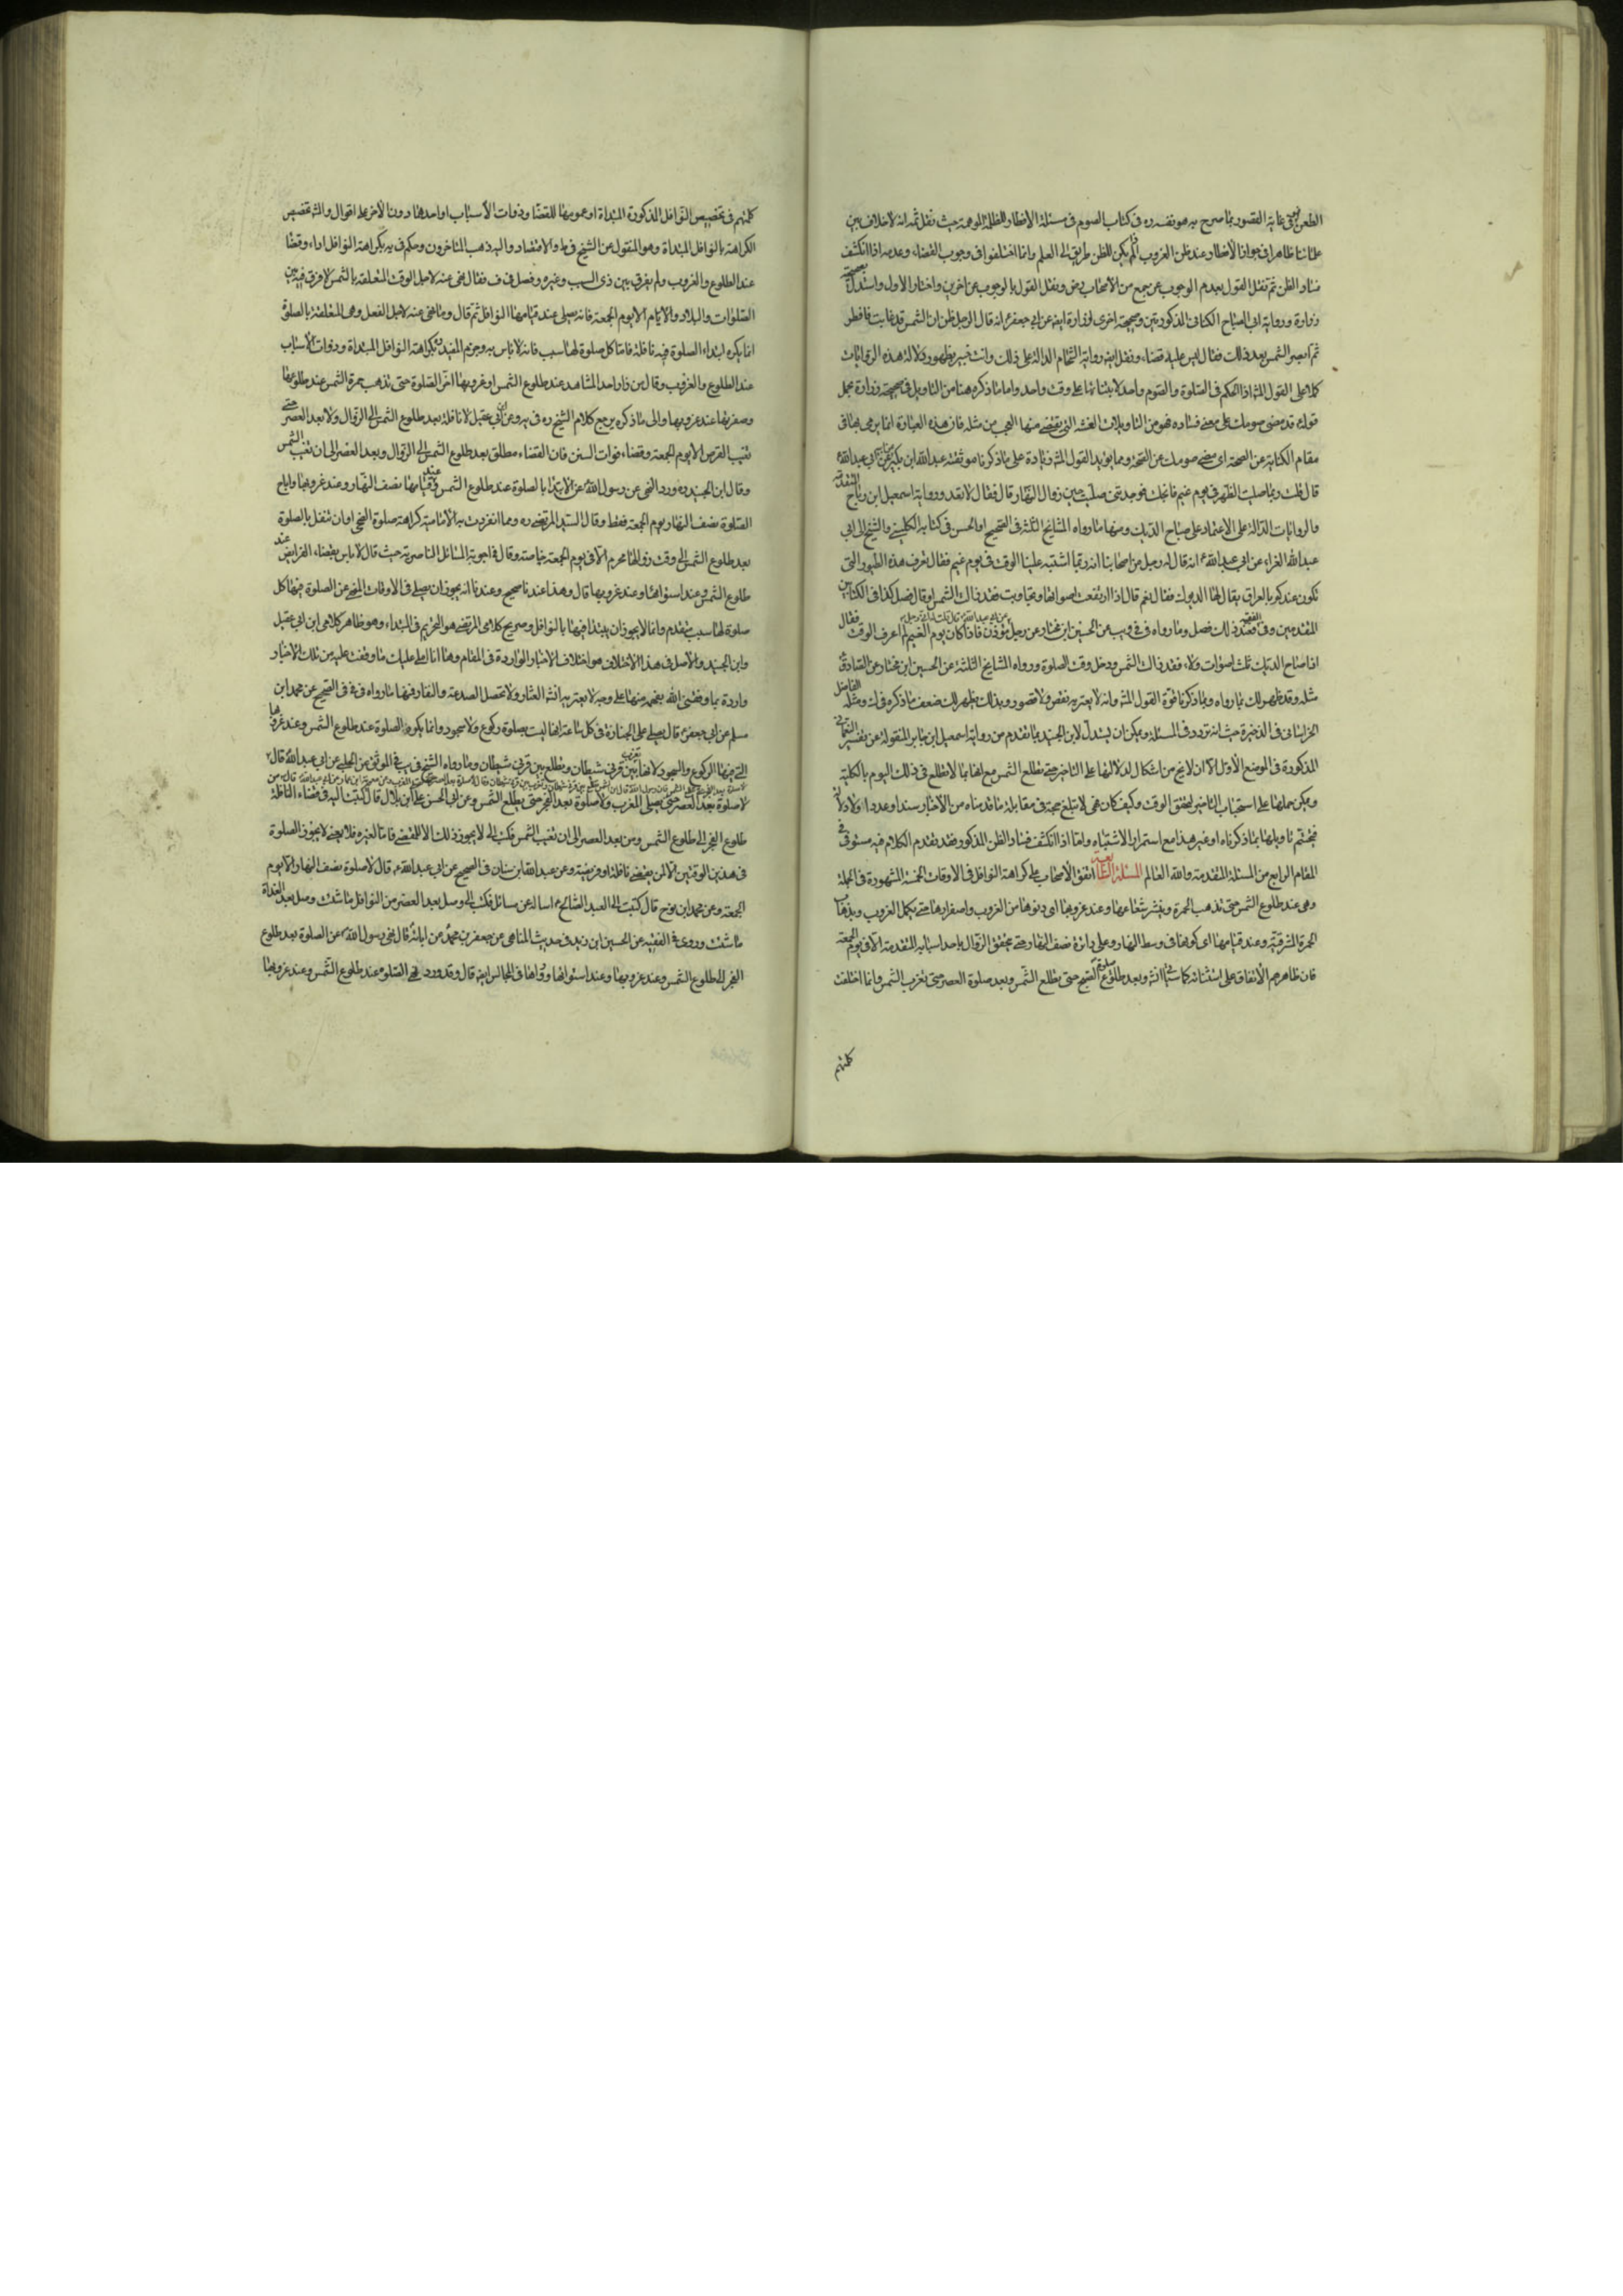 الطعن فهى غاية القصور بما صرح به هو نفسه ره فى كتاب الصوم فى مسئلة الافطار للظلمة الموهمة حيث نقل ثمه انه لا خلاف بين
علمائنا ظاهرا فى جواز الافطار عند ظن الغروب اذا لم يكن للظن طريق الى العلم وانما اختلفوا فى وجوب القضاء وعدمه اذا انكشف
فساد الظن ثم نقل القول بعدم الوجوب عن جمع من الاصحاب رض ونقل القول بالوجوب عن اخرين واختار الاول واستدل بصحيحة
زرارة ورواية ابى الصباح الكنانى المذكورتين وصحيحة اخرى لزرارة ايضه عن ابى جعفر ع انه قال لرجل ظن ان الشمس قد غابت فافطر
ثم ابصر الشمس بعد ذلك فقال ليس عليه قضاء ونقل ايضه رواية الشحام الدالة على ذلك وانت خبير بظهور دلالة هذه الروايات
كلها على القول المشه اذ الحكم فى الصلوة والصوم واحد لابتنائهما على وقت واحد واما ما ذكره هنا من التاويل فى صحيحة زرارة بحمل
قوله ع قد مضى صومك على معنى فساده فهو من التاويلات الغثة التى يقضى منها العجب من مثله فان هذه العبارة انما يرمى بها فى
مقام الكناية عن الصحة اى مضى صومك عن الصحة ومما يؤيد القول المشه زيادة على ما ذكرنا موثقة عبد الله ابن بكير عن ابيه عن ابى عبد الله ع
قال قلت ربما صليت الظهر فى يوم غيم فانجلت فوجدتنى صليت حين زوال النهار قال فقال لا تعد ورواية اسمعيل ابن رباح المتقدمة
والروايات الدالة على الاعتماد على صياح الديك ومنها ما رواه المشايخ الثلثة فى الصحيح او الحسن فى كتابه الكلينى والشيخ الى ابى
عبد الله الفراء عن ابى عبد الله ع انه قال له رجل من اصحابنا انه ربما اشتبه علينا الوقت فى يوم غيم فقال تعرف هذه الطيور التى
تكون عندكم بالعراق يقال لها الديوك فقال نعم قال اذا ارتفعت اصواتها وتجاوبت فقد زالت الشمس او قال فصل كذا فى الكتابين
المقدمين وفى الفقيه فعند ذلك فصل وما رواه فى فى ويب عن الحسين ابن مختار عن رجل مؤذن فاذا كان يوم الغيم لم اعرف الوقت فقال
اذا صاح الديك ثلث اصوات ولاء فقد زالت الشمس ودخل وقت الصلوة ورواه المشايخ الثلثة عن الحسين ابن مختار عن الصادق ع
مثله وقد ظهر لك بما رواه وبما ذكرنا قوة القول المشه وانه لا يعتريه نقص ولا قصور وبذلك يظهر لك ضعف ما ذكره فى ك ومثله الفاضل
الخراسانى فى الذخيرة حيث انه تردد فى المسئلة ويمكن ان يستدل لابن الجنيد بما تقدم من رواية اسمعيل ابن جابر المنقولة عن تفسير النعمانى
المذكورة فى الموضع الاول الا ان لا يخ من اشكال لدلالتها على التاخير حتى تطلع الشمس مع انها ربما لا تطلع فى ذلك اليوم بالكلية
ويمكن حملها على استحباب التاخير لتحقق الوقت وكيف كان فهى لا تبلغ حجة فى مقابلة ما قدمناه من الاخبار سندا وعددا ودلالة
فيحتم تاويلها بما ذكرناه او غيره هذا مع استمرار الاشتباه واما اذا انكشف فساد الظن المذكور فقد تقدم الكلام فيه مستوفى فى
المقام الرابع من المسئلة المتقدمة والله العالم المسئلة السابعة اتفق الاصحاب على كراهة النوافل فى الاوقات الخمسة المشهورة فى الجملة
وهى عند طلوع الشمس حتى تذهب الحمرة وينتشر شعاعها وعند غروبها اى دنوها من الغروب واصفرارها حتى يكمل الغروب وبذهاب
الحمرة المشرقية وعند قيامها اى كونها فى وسط النهار وعلى دائرة نصف النهار حتى يتحقق الزوال باحد اسبابه المتقدمة الا فى يوم الجمعة
فان ظاهرهم الاتفاق على استثنائه كما سياتى انشه وبعد صلوة الصبح حتى تطلع الشمس وبعد صلوة العصر حتى تغرب الشمس وانما اختلفت
كلمتهم
كلمتهم فى تخصيص النوافل المذكورة المبتداة او عمومها للقضاء وذوات الاسباب او احدهما دون الاخر على اقوال والمشه تخصيص
الكراهة بالنوافل المبتداة وهو المنقول عن الشيخ فى ط والاقتصاد واليه ذهب المتاخرون وحكم فى يه بكراهة النوافل اداء وقضا
عند الطلوع والغروب ولم يفرق بين ذى السبب وغيره وفصل فى ف فقال فيما نهى عنه لاجل الوقت المتعلقة بالشمس لا فرق فيه بين
الصلوات والبلاد والايام الا يوم الجمعة فانه يصلى عند قيامها النوافل ثم قال وما نهى عنه لاجل الفعل وهى المتعلقة بالصلوة
انما يكره ابتداء الصلوة فيه نافلة فاما كل صلوة لها سبب فانه لا باس به وجزم المفيد ره بكراهة النوافل المبتداة وذوات الاسباب
عند الطلوع والغروب وقال من زار احد المشاهد عند طلوع الشمس او غروبها اخر الصلوة حتى تذهب حمرة الشمس عند طلوعها
وصفرتها عند غروبها والى ما ذكره يرجع كلام الشيخ ره فى يه وعن ابن ابى عقيل لا نافلة بعد طلوع الشمس الى الزوال ولا بعد العصر حتى
تغيب القرص الا يوم الجمعة وقضاء فوات السنن فان القضاء مطلق بعد طلوع الشمس الى الزوال وبعد العصر الى ان تغيب الشمس
وقال ابن الجنيد ره ورد النهى عن رسول الله ص عن الابتداء بالصلوة عند طلوع الشمس وعند قيامها نصف النهار وعند غروبها واباح
الصلوة نصف النهار يوم الجمعة فقط وقال السيد المرتضى ره ومما انفردت به الامامية كراهة صلوة الضحى وان تنفل بالصلوة
بعد طلوع الشمس الى وقت زوالها محرم الا فى يوم الجمعة خاصة وقال فى اجوبة المسائل الناصرية حيث قال لا باس بقضاء الفرايض عند
طلوع الشمس وعند استوائها وعند غروبها قال وهذا عندنا صحيح وعندنا انه يجوز ان يصلى فى الاوقات المنهى عن الصلوة فيها كل
صلوة لها سبب متقدم وانما لا يجوز ان يبتدا فيها بالنوافل وصريح كلامى المرتضى هو التحريم فى المبتداة وهو ظاهر كلامى ابن ابى عقيل
وابن الجنيد والاصل فى هذا الاختلاف هو اختلاف الاخبار الواردة فى المقام وها انا املى عليك ما وقفت عليه من تلك الاخبار
واردة بما وفقنى الله بفهمه منها على وجه لا يعتريه انشه العثار ولا تحصل الصدعة والغار فمنها ما رواه فى فى فى الصحيح عن محمد ابن
مسلم عن ابى جعفر ع قال يصلى على الجنازة فى كل ساعة انها ليست بصلوة ركوع ولا سجود وانما يكره الصلوة عند طلوع الشمس وعند غروبها
التى فيها الركوع والسجود لانها تغرب بين قرنى شيطان وتطلع بين قرنى شيطان وما رواه الشيخ فى يب فى الموثق عن الحلبى عن ابى عبد الله ع قال
لا صلوة بعد العصر حتى يصلى المغرب ولا صلوة بعد الفجر حتى يطلع الشمس وعن ابى الحسن على ابن بلال قال كتبت اليه فى قضاء النافلة
طلوع الفجر الى طلوع الشمس ومن بعد العصر الى ان تغيب الشمس فكتب الى لا يجوز ذلك الا للمقتضى فاما لغيره فلا يعنى لا يجوز الصلوة
فى هذين الوقتين الا لمن يقضى نافلة او فريضة وعن عبد الله ابن سنان فى الصحيح عن ابى عبد الله ع قال لا صلوة نصف النهار الا يوم
الجمعة وعن محمد ابن فرج قال كتبت الى العبد الصالح ع اساله عن مسائل فكتب الى وصل بعد العصر من النوافل ما شئت وصل بعد الغداة
ما شئت وروى فى الفقيه عن الحسين ابن زيد فى حديث المناهى عن جعفر بن محمد عن ابائه ع قال نهى رسول الله ص عن الصلوة بعد طلوع
الفجر الى طلوع الشمس وعند غروبها وعند استوائها ورواها فى المجالس ايضه قال وقد ورد نهى الصلوة عند طلوع الشمس وعند غروبها